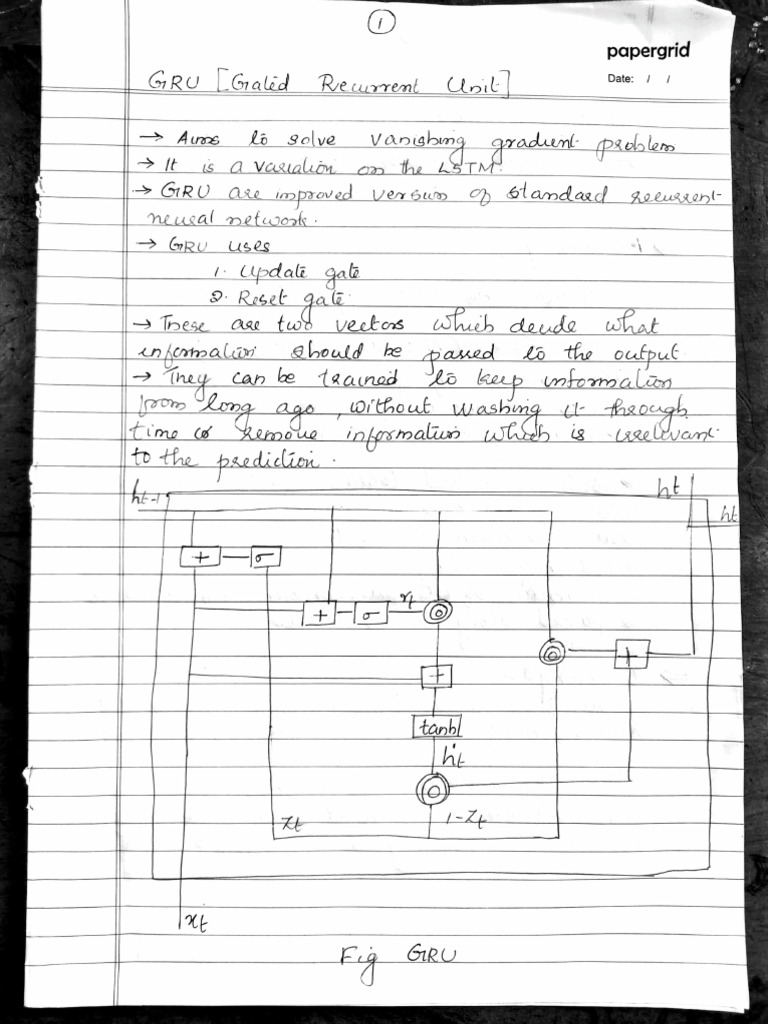 1
papergrid
Date: / /
GRU [Gated Recurrent Unit]
→ Aims to solve vanishing gradient problem
→ It is a variation on the LSTM.
→ GRU are improved version of standard recurrent
neural network.
→ GRU uses
1. Update gate
2. Reset gate.
→ These are two vectors which decide what
information should be passed to the output
→ They can be trained to keep information
from long ago, without washing it through
time or remove information which is irrelevant
to the prediction.
ht-1 ht
ht
+ σ
+ σ rt
+
+
tanh
h't
zt 1-Zt
xt
Fig GRU